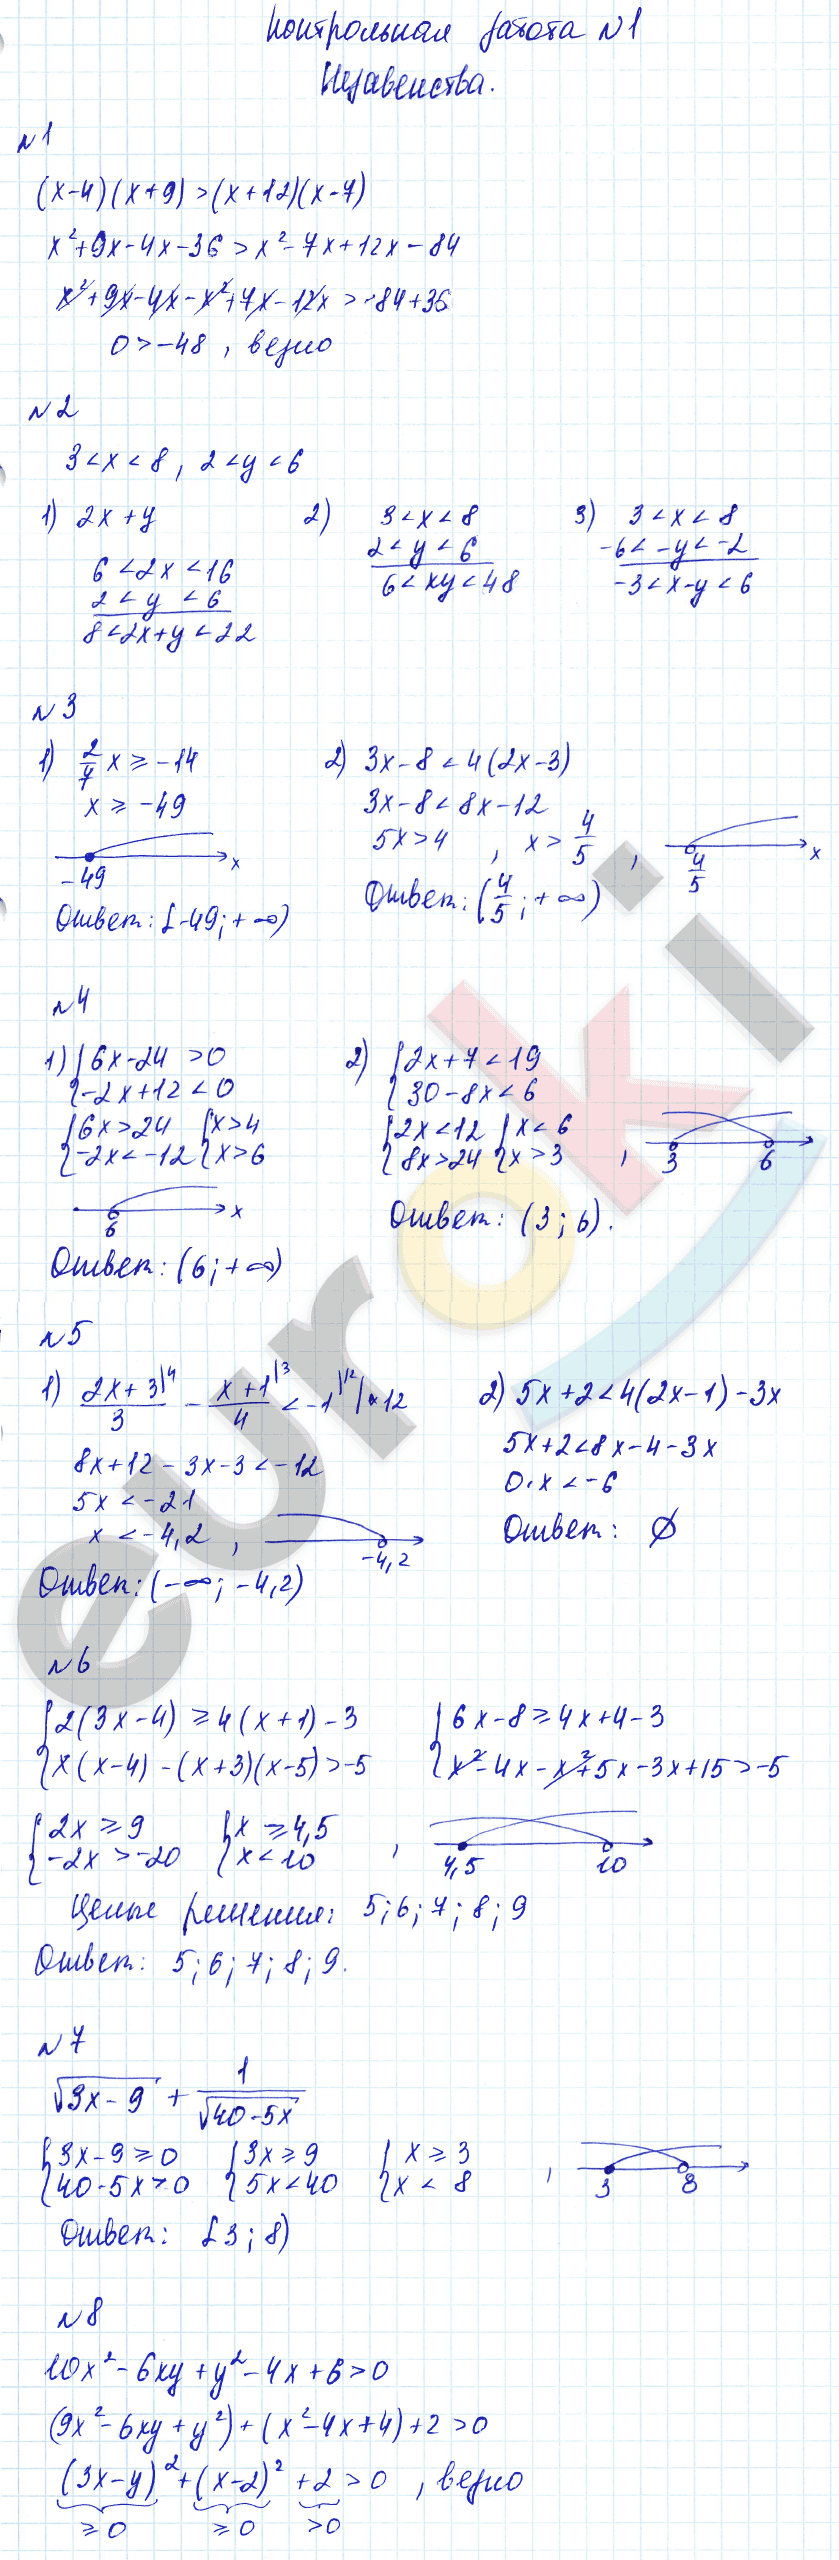 Контрольная работа №1
Неравенства.
№1
(x-4)(x+9)>(x+12)(x-7)
x²+9x-4x-36>x²-7x+12x-84
x²+9x-4x-x²+7x-12x>-84+36
0>-48, верно
№2
3<x<8, 2<y<6
1) 2x+y
6<2x<16
2<y<6
8<2x+y<22
2) 3<x<8
2<y<6
6<xy<48
3) 3<x<8
-6<-y<-2
-3<x-y<6
№3
1) 2/7 x ≥ -14
x ≥ -49
-49 x
Ответ: [-49;+∞)
2) 3x-8<4(2x-3)
3x-8<8x-12
5x>4, x>4/5,
4/5 x
Ответ: (4/5;+∞)
№4
1) {6x-24>0
{-2x+12<0
{6x>24 {x>4
{-2x<-12 {x>6
6 x
Ответ: (6;+∞)
2) {2x+7<19
{30-8x<6
{2x<12 {x<6
{8x>24 {x>3,
3 6
Ответ: (3;6).
№5
1) (2x+3)/3 |4 - (x+1)/4 |3 < -1 |12 | ×12
8x+12-3x-3<-12
5x<-21
x<-4,2,
-4,2
Ответ: (-∞;-4,2)
2) 5x+2<4(2x-1)-3x
5x+2<8x-4-3x
0·x<-6
Ответ: ∅
№6
{2(3x-4) ≥ 4(x+1)-3 {6x-8 ≥ 4x+4-3
{x(x-4)-(x+3)(x-5)>-5 {x²-4x-x²+5x-3x+15>-5
{2x ≥ 9 {x ≥ 4,5
{-2x>-20 {x<10,
4,5 10
Целые решения: 5;6;7;8;9
Ответ: 5;6;7;8;9.
№7
√(3x-9) + 1/√(40-5x)
{3x-9 ≥ 0 {3x ≥ 9 {x ≥ 3
{40-5x>0 {5x<40 {x<8,
3 8
Ответ: [3;8)
№8
10x²-6xy+y²-4x+6>0
(9x²-6xy+y²)+(x²-4x+4)+2>0
(3x-y)²+(x-2)²+2>0, верно
≥0 ≥0 >0
euroki